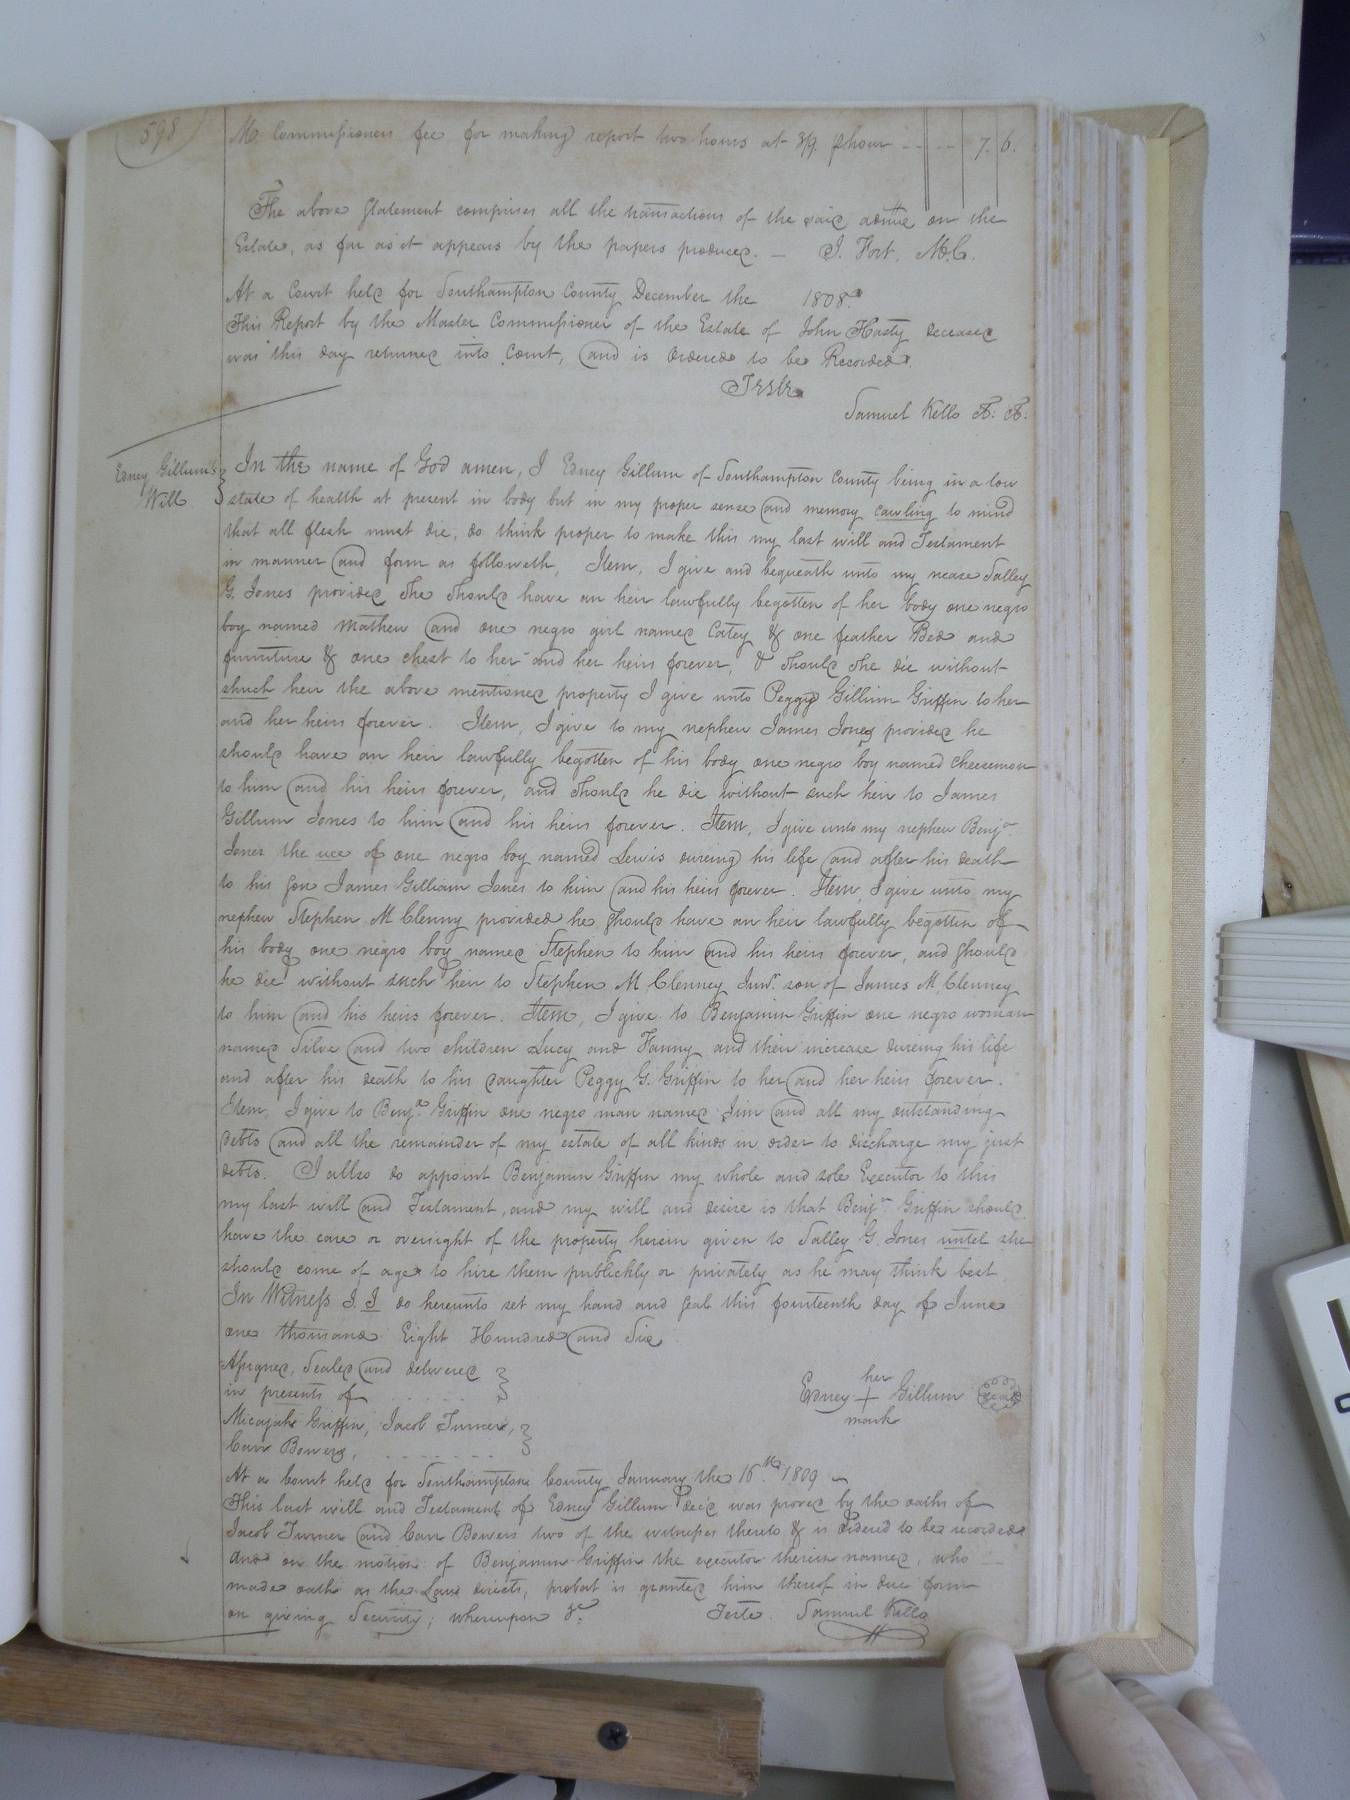 598
M. Commissioners fee for making report two hours at 3/9. P hour -- -- 7. 6.
The above Statement comprises all the transactions of the said admr on the
Estate, as far as it appears by the papers produced. — J. Fort, M.C.
At a Court held for Southampton County December the 1808.
This Report by the Master Commissioner of the Estate of John Hasty deceased
was this day returned into Court, and is Ordered to be Recorded.
Teste
Samuel Kello
Edney Gillum's
Will
In the name of God amen, I Edney Gillum of Southampton County being in a low
state of health at present in body but in my proper sense and memory cawling to mind
that all flesh must die, do think proper to make this my last will and Testament
in manner and form as followeth, Item, I give and bequeath unto my nease Salley
G. Jones provided she should have an heir lawfully begotten of her body one negro
boy named Mathew and one negro girl named Catey & one feather Bed and
furniture & one chest to her and her heirs forever, & should she die without
shuch heir the above mentioned property I give unto Peggy Gillium Griffin to her
and her heirs forever. Item, I give to my nephew James Jones provided he
should have an heir lawfully begotten of his body one negro boy named Cheeseman
to him and his heirs forever, and should he die without such heir to James
Gillium Jones to him and his heirs forever. Item, I give unto my nephew Benja.
Jones the uce of one negro boy named Lewis dureing his life and after his death
to his son James Gilliam Jones to him and his heirs forever. Item, I give unto my
nephew Stephen M Clenny provided he should have an heir lawfully begotten of
his body one negro boy named Stephen to him and his heirs forever, and should
he die without such heir to Stephen M. Clenney Junr. son of James M, Clenney
to him and his heirs forever. Item, I give to Benjamin Griffin one negro woman
named Silve and two children Lucy and Fanny and their increase dureing his life
and after his death to his daughter Peggy G. Griffin to her and her heirs forever.
Item, I give to Benja. Griffin one negro man named Jim and all my outstanding
debts and all the remainder of my estate of all kinds in order to discharge my just
debts. I allso do appoint Benjamin Griffin my whole and sole Executor to this
my last will and Testament, and my will and desire is that Benja. Griffin should
have the care or oversight of the property herein given to Salley G. Jones untel she
should come of age to hire them publickly or privately as he may think best
In Witness I. I do hereunto set my hand and seal this fourteenth day of June
one thousand Eight Hundred and Six
Assigned, Sealed and delivered
in presents of
her
Edney + Gillum Seal
mark
Micajah Griffin, Jacob Turner,
Carr Bowers,
At a Court held for Southampton County January the 16th 1809 —
This last will and Testament of Edney Gillum decd was proved by the oaths of
Jacob Turner and Carr Bowers two of the witnesses thereto & is ordered to be recorded
And on the motion of Benjamin Griffin the executor therein named, who —
made oath as the Law directs, probat is granted him thereof in due form
on giving Security; whereupon &c. Teste. Samuel Kello